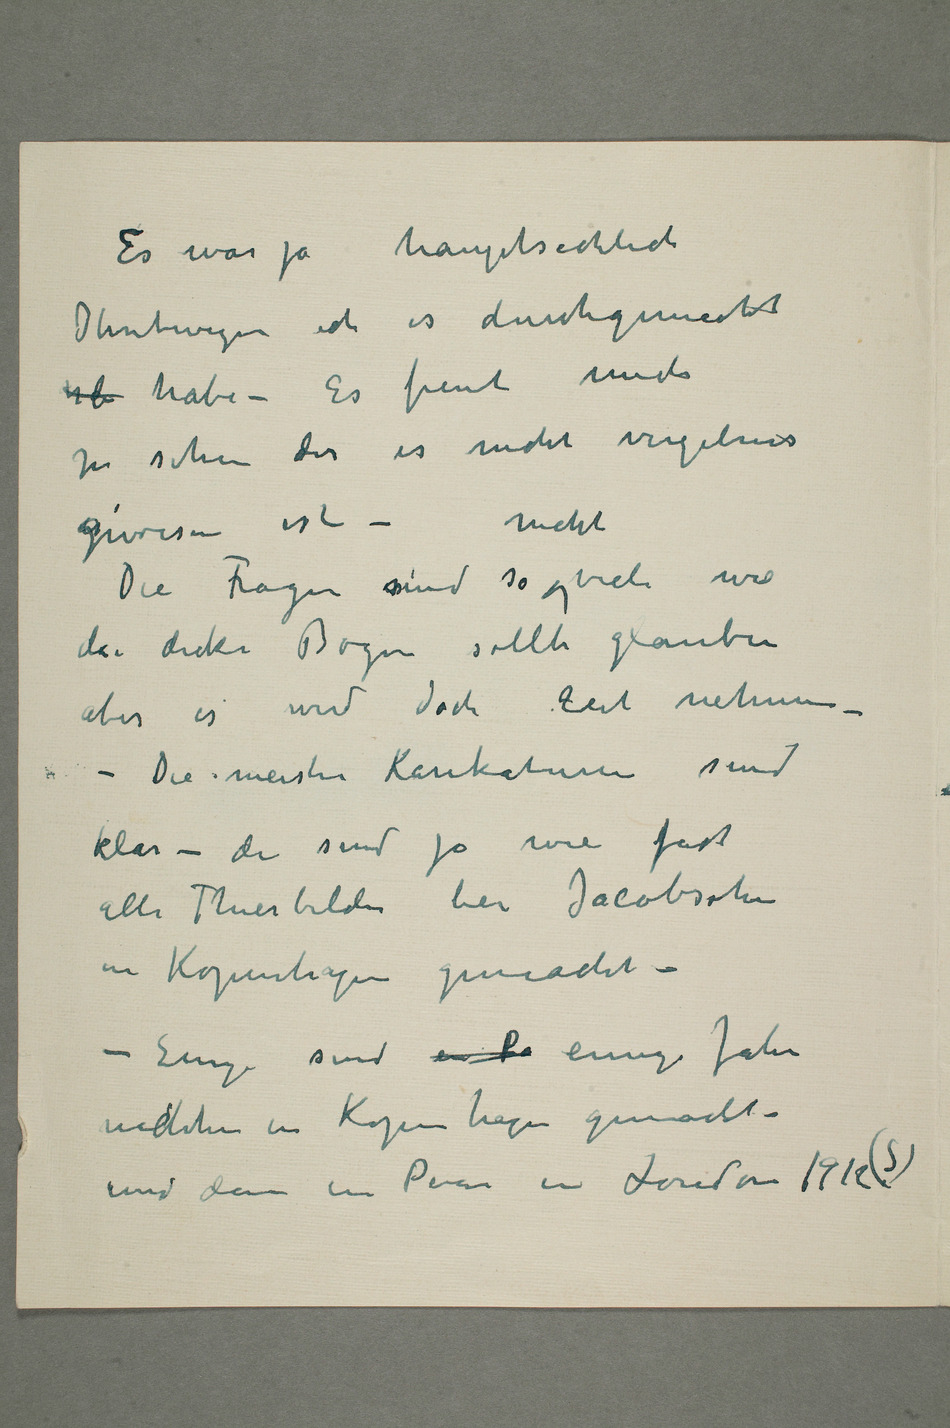 Es war ja hauptsechlich
Ihretwegen ich es durchgemacht
habe – Es freut mich
zu sehen das es nicht vergebens
gewesen ist – nicht
Die Fragen sind so viele wie
die dicke Bogen sollte glauben
aber es wird doch Zeit nehmen –
– Die meisten Karikaturen sind
klar – die sind ja wie fast
alle Thierbilder bei Jacobsohn
in Kopenhagen gemacht –
– Einige sind in Pa einige Jahr
nachher in Kopenhagen gemacht –
und dann ein Paar in London 1912(?)